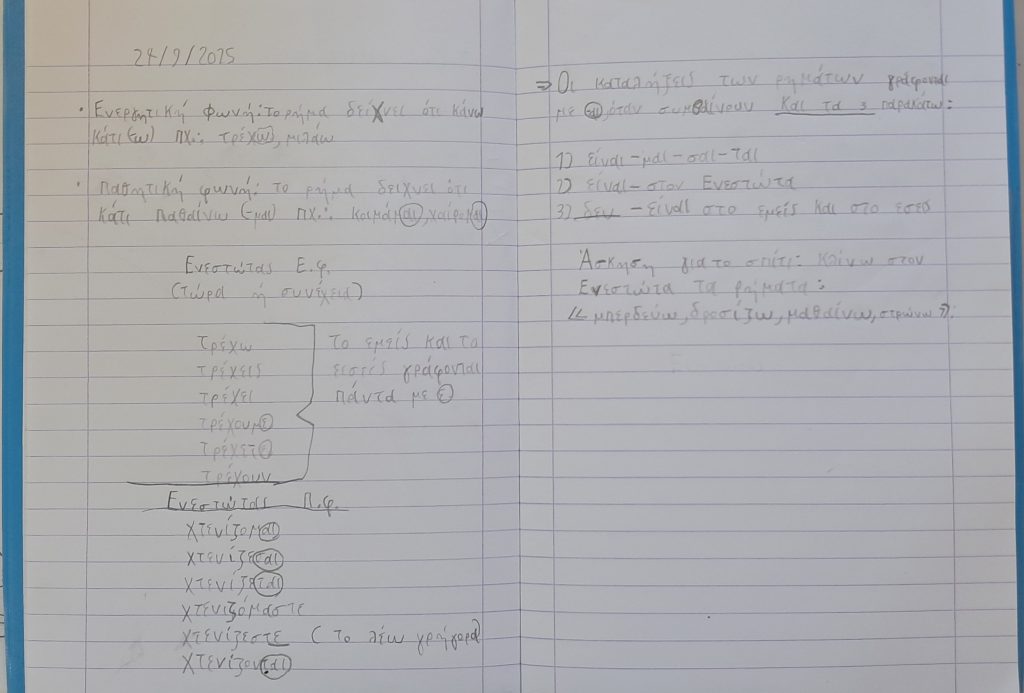 24/9/2025
• Ενεργητική φωνή: Το ρήμα δείχνει ότι κάνω
κάτι (-ω) πχ.: τρέχω, μιλάω
• Παθητική φωνή: το ρήμα δείχνει ότι
κάτι παθαίνω (-μαι) πχ.: κοιμάμαι, χαίρομαι
Ενεστώτας Ε.φ.
(τώρα ή συνέχεια)
τρέχω
τρέχεις
τρέχει
τρέχουμε
τρέχετε
τρέχουν
Το εμείς και το
εσείς γράφονται
πάντα με ε
Ενεστώτας Π.φ.
χτενίζομαι
χτενίζεται
χτενίζεται
χτενιζόμαστε
χτενίζεστε (το λέω γρήγορα)
χτενίζονται
⇒ Οι καταλήξεις των ρημάτων γράφονται
με αι, όταν συμβαίνουν και τα 3 παρακάτω:
1) είναι -μαι -σαι -ται
2) είναι - στον Ενεστώτα
3) δεν - είναι στο εμείς και στο εσείς
Άσκηση για το σπίτι: Κλίνω στον
Ενεστώτα τα ρήματα:
<< μπερδεύω, δροσίζω, μαθαίνω, στρώνω >>: